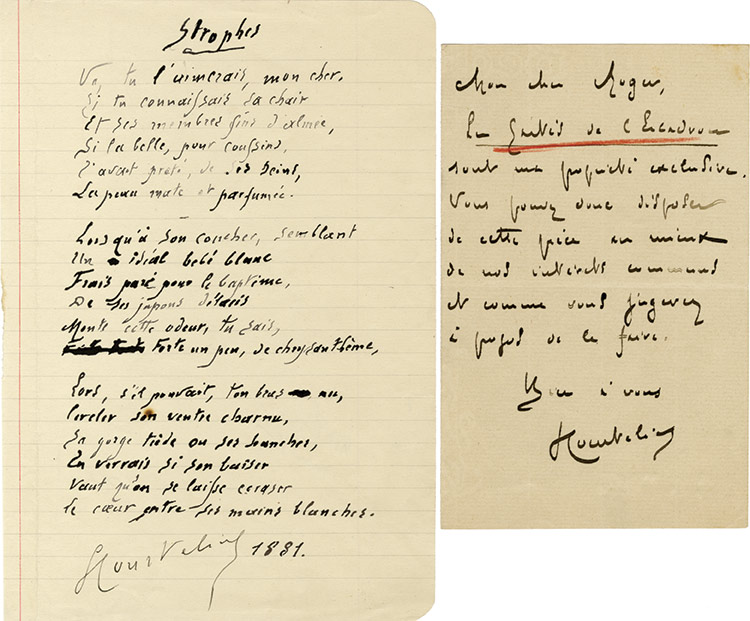 Strophes
Va, tu l'aimerais, mon cher,
Si tu connaissais sa chair
Et ses membres fins d'almée,
Si la belle, pour coussins,
T'avait prêté, de ses seins,
La peau mate et parfumée.
Lorsqu'à son coucher, semblant
Un idéal bébé blanc
Frais paré pour le baptême,
De ses jupons délacés
Monte cette odeur, tu sais,
forte un peu, de chrysanthème,
Lors, s'il pouvait, ton bras nu,
Cercler son ventre charnu,
Sa gorge tiède ou ses hanches,
Tu verrais si son baiser
Vaut qu'on se laisse écraser
Le cœur entre ses mains blanches.
GCourteline 1881.
Mon cher Roger,
Les Gaités de l'Escadron
sont ma propriété exclusive.
Vous pouvez donc disposer
de cette pièce au mieux
de nos intérêts communs
et comme vous jugerez
à propos de le faire.
Bien à vous
GCourteline